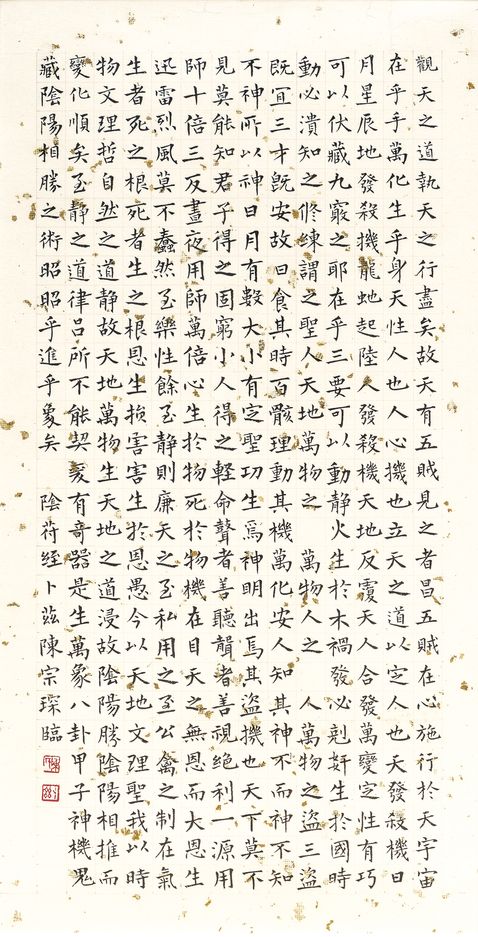 觀天之道執天之行盡矣故天有五賊見之者昌五賊在心施行於天宇宙
在乎手萬化生乎身天性人也人心機也立天之道以定人也天發殺機日
月星辰地發殺機龍虵起陸人發殺機天地反覆天人合發萬變定性有巧
可以伏藏九竅之耶在乎三要可以動靜火生於木禍發必剋奸生於國時
動必潰知之修練謂之聖人天地萬物之 萬物人之 人萬物之盜三盜
既宜三才既安故曰食其時百骸理動其機萬化安人知其神不而神不知
不神所以神日月有數大小有定聖功生焉神明出焉其盜機也天下莫不
見莫能知君子得之固窮小人得之軽命聲者善聽聾者善視絕利一源用
師十倍三反晝夜用師萬倍心生於物死於物機在目天之無恩而大恩生
迅雷烈風莫不蠢然至樂性餘至靜則廉天之至私用之至公禽之制在氣
生者死之根死者生之根恩生損害害生於恩愚今以天地文理聖我以時
物文理哲自然之道静故天地萬物生天地之道浸故陰陽勝陰陽相推而
變化順矣至静之道律呂所不能契爰有奇器是生萬象八卦甲子神機鬼
藏陰陽相勝之術昭昭乎進乎象矣 陰苻經卜茲陳宗琛臨